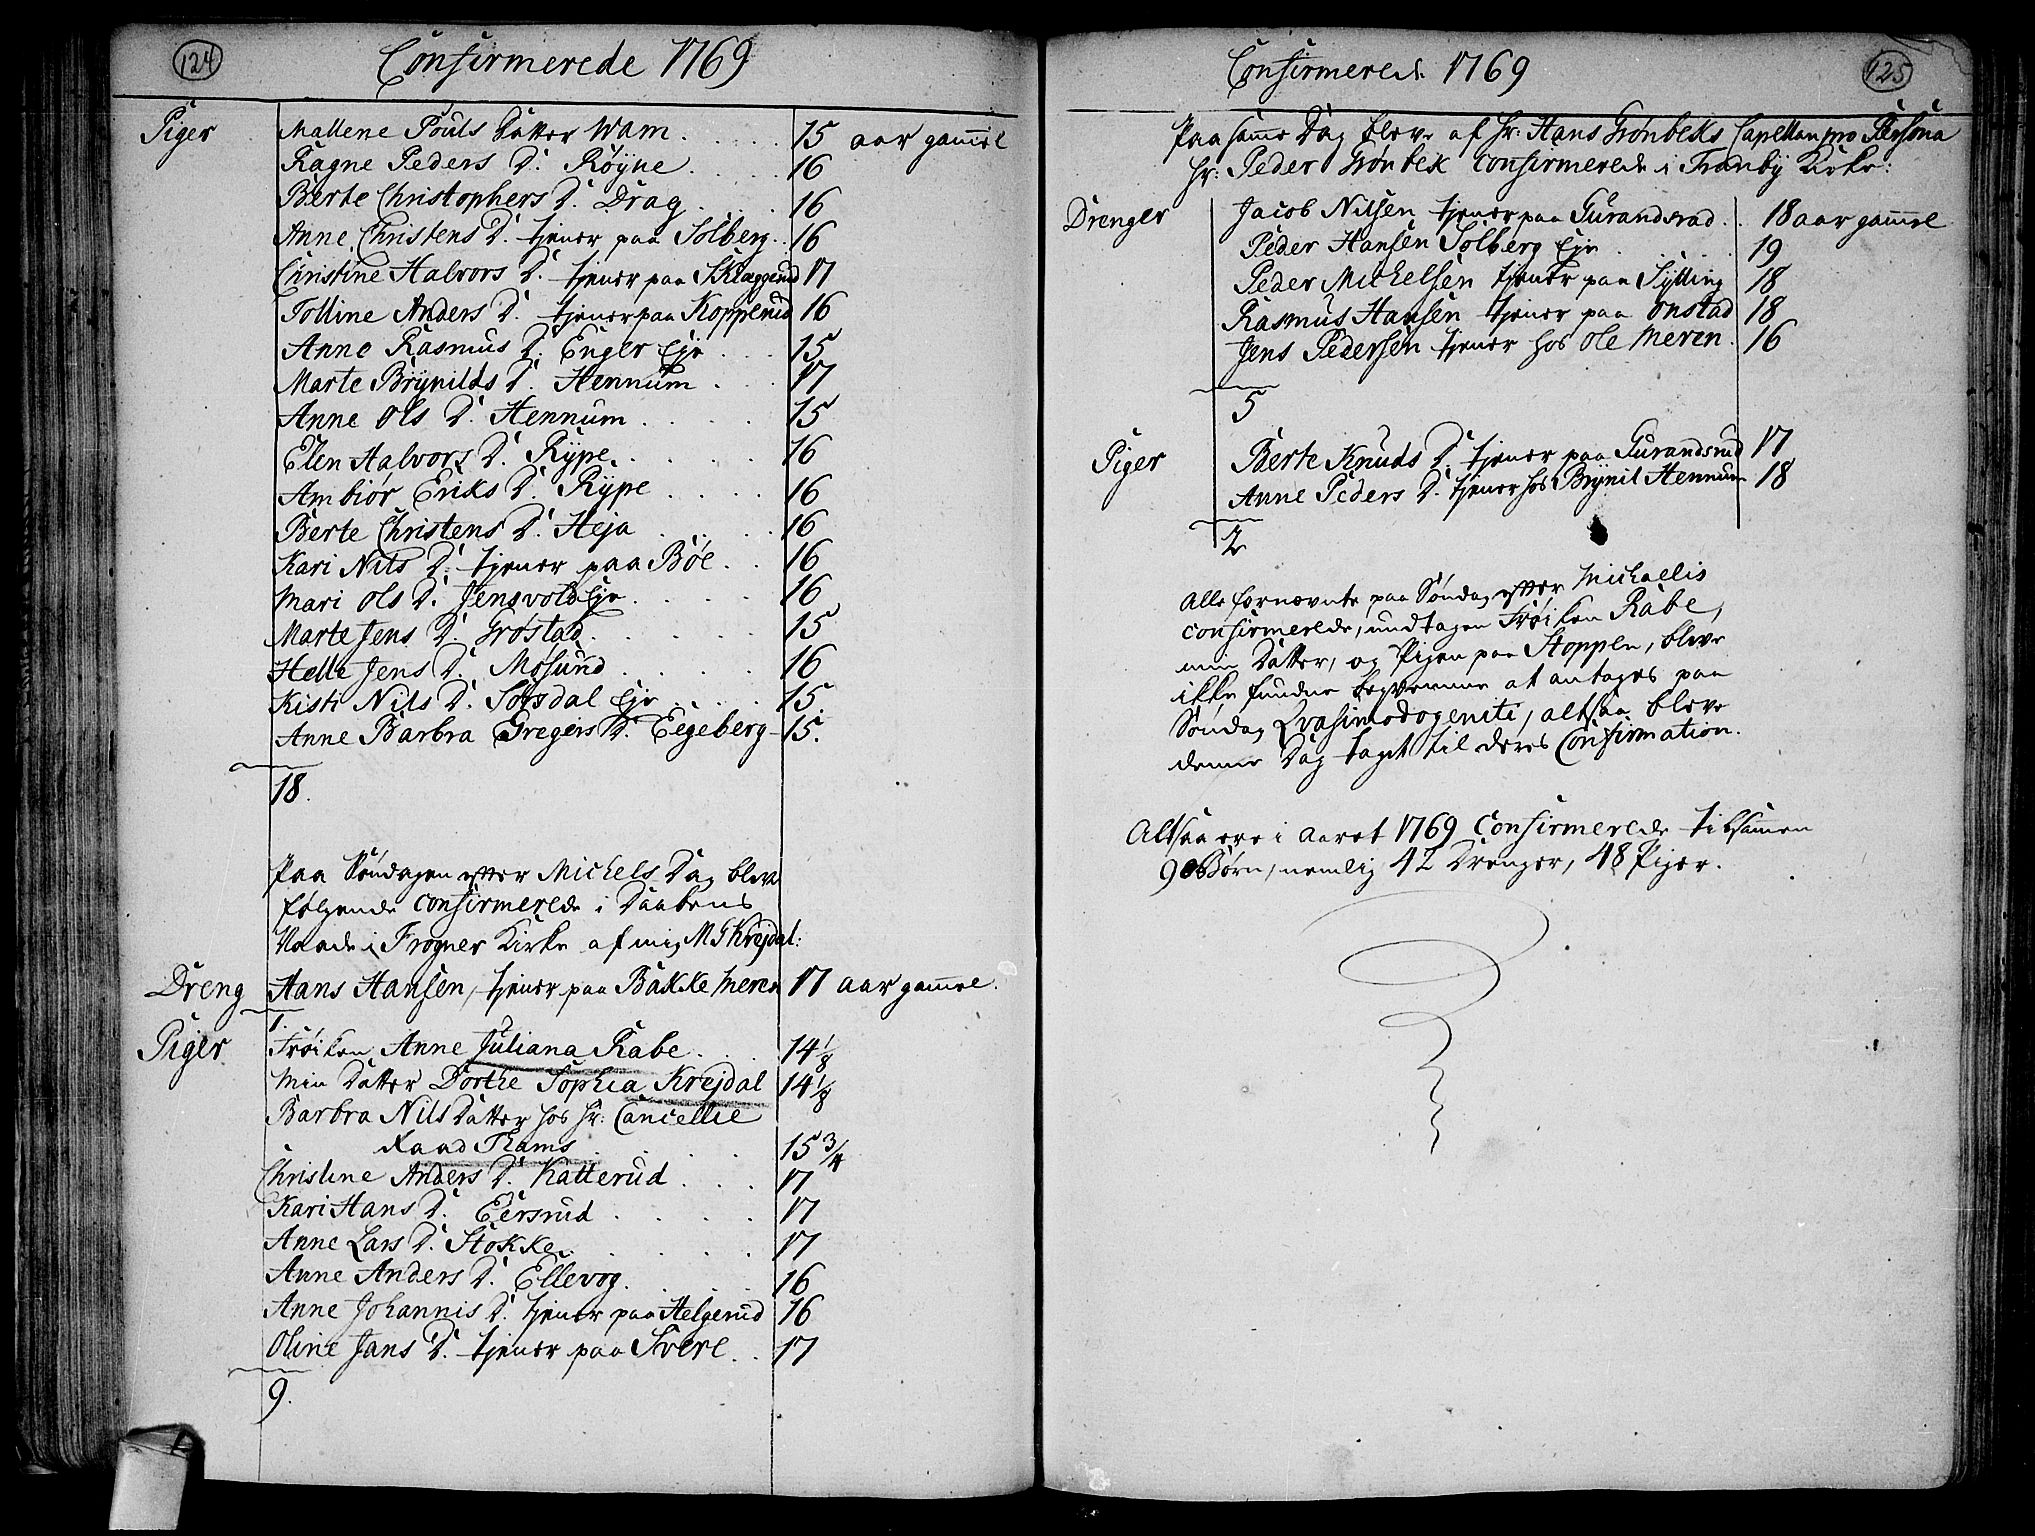 124
Confirmerede 1769
Piger
Mallene Pouls Datter Wam . . . . 15 aar gammel
Ragne Peders D. Røyne . . . . 16
Berte Christophers D. Drag . . . 16
Anne Christens D. tjener paa Solberg . . 16
Christine Halvors D. tjener paa Sklaggerud 17
Tolline Anders D. tjener paa Kopperud 16
Anne Rasmus D. Enger Eje . . . 15
Marte Brynilds D. Hennum . . . 17
Anne Ols D. Hennum . . . . 15
Elen Halvors D. Rype . . . . 16
Ambiør Eriks D. Rype . . . . 16
Berte Christens D. Heja . . . . 16
Kari Nils D. tjener paa Bøe . . 16
Mari Ols D. Jensvold Eje . . . . 16
Marte Jens D. Grøstad . . . . 15
Helle Jens D. Møsund . . . . 16
Kisti Nils D. Solsdal Eje . . . . 15.
Anne Barbra Gregers D. Eegeberg - 15.
18.
Paa Søndagen efter Michels Dag bleve
følgende confirmerede i Daabens
Naade i Frogner Kirke af mig M G Krejdal:
Dreng Hans Hansen, tjener paa Bakke Meren 17 aar gammel.
1.
Piger Frøiken Anne Juliana Rabe . . 14 1/8
Min Datter Dorthe Sophia Krejdal 14 1/8
Barbra Nils Datter hos Hr: Cancellie
Raad Thams . . . . 15 3/4
Christine Anders D. Katterud . . . 17
Kari Hans D. Eersrud . . . . 17
Anne Lars D. Stokke . . . . 17
Anne Anders D. Ellevog . . . . 16
Anne Johannis D. tjener paa Helgerud 16
Oline Jans D. tjener paa Svere . . 17
9.
Confirmerede 1769
125
Paa samme Dag bleve af Hr: Hans Grønbeks Capellan pro Persona
Hr: Peder Grønbek confirmerede i Tranby Kirke:
Drenger
Jacob Nilsen tjener paa Gurandsrud . . 18 aar gammel
Peder Hansen Solberg Eje . . 19
Peder Michelsen tjener paa Sylling 18
Rasmus Hansen tjener paa Onstad 18
Jens Pedersen tjener hos Ole Meren . 16
5
Piger
Berte Knuds D. tjener paa Gurandsrud 17
Anne Peders D. tjener hos Brynil Hennum 18
2
Alle fornævnte paa Søndag efter Michaelis
confirmerede, undtagen Frøiken Rabe,
min Datter, og Pigen paa Stoppen, bleve
ikke fundne beqvemme at antages paa
Søndag Qvasimodogeniti, altsaa bleve
denne Dag taget til deres Confirmation.
Altsaa ere i Aaret 1769 Confirmerede tilsammen
90 Børn, nemlig 42 Drenger, 48 Piger.